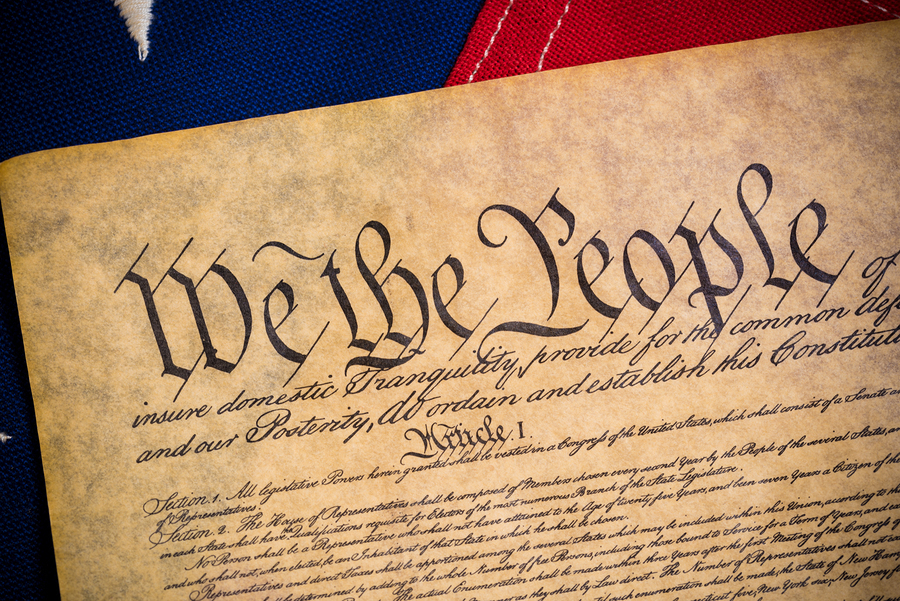 We the People of
insure domestic Tranquility, provide for the common def
and our Posterity, do ordain and establish this Constituti
Article. I.
Section. 1. All legislative Powers herein granted shall be vested in a Congress of the United States, which shall consist of a Senate a
of Representatives.
Section. 2. The House of Representatives shall be composed of Members chosen every second Year by the People of the several States, a
in each State shall have the Qualifications requisite for Electors of the most numerous Branch of the State Legislature.
No Person shall be a Representative who shall not have attained to the Age of twenty five Years, and been seven Years a Citizen of the
and who shall not, when elected, be an Inhabitant of that State in which he shall be chosen.
Representatives and direct Taxes shall be apportioned among the several States which may be included within this Union, according to the
shall be determined by adding to the whole Number of free Persons, including those bound to Service for a Term of Years, and ex
The actual Enumeration shall be made within three Years after the first Meeting of the Congress of
as they shall by Law direct. The Number of Representatives shall not
until such enumeration shall be made, the State of New Ham
five, New York six, New Jersey